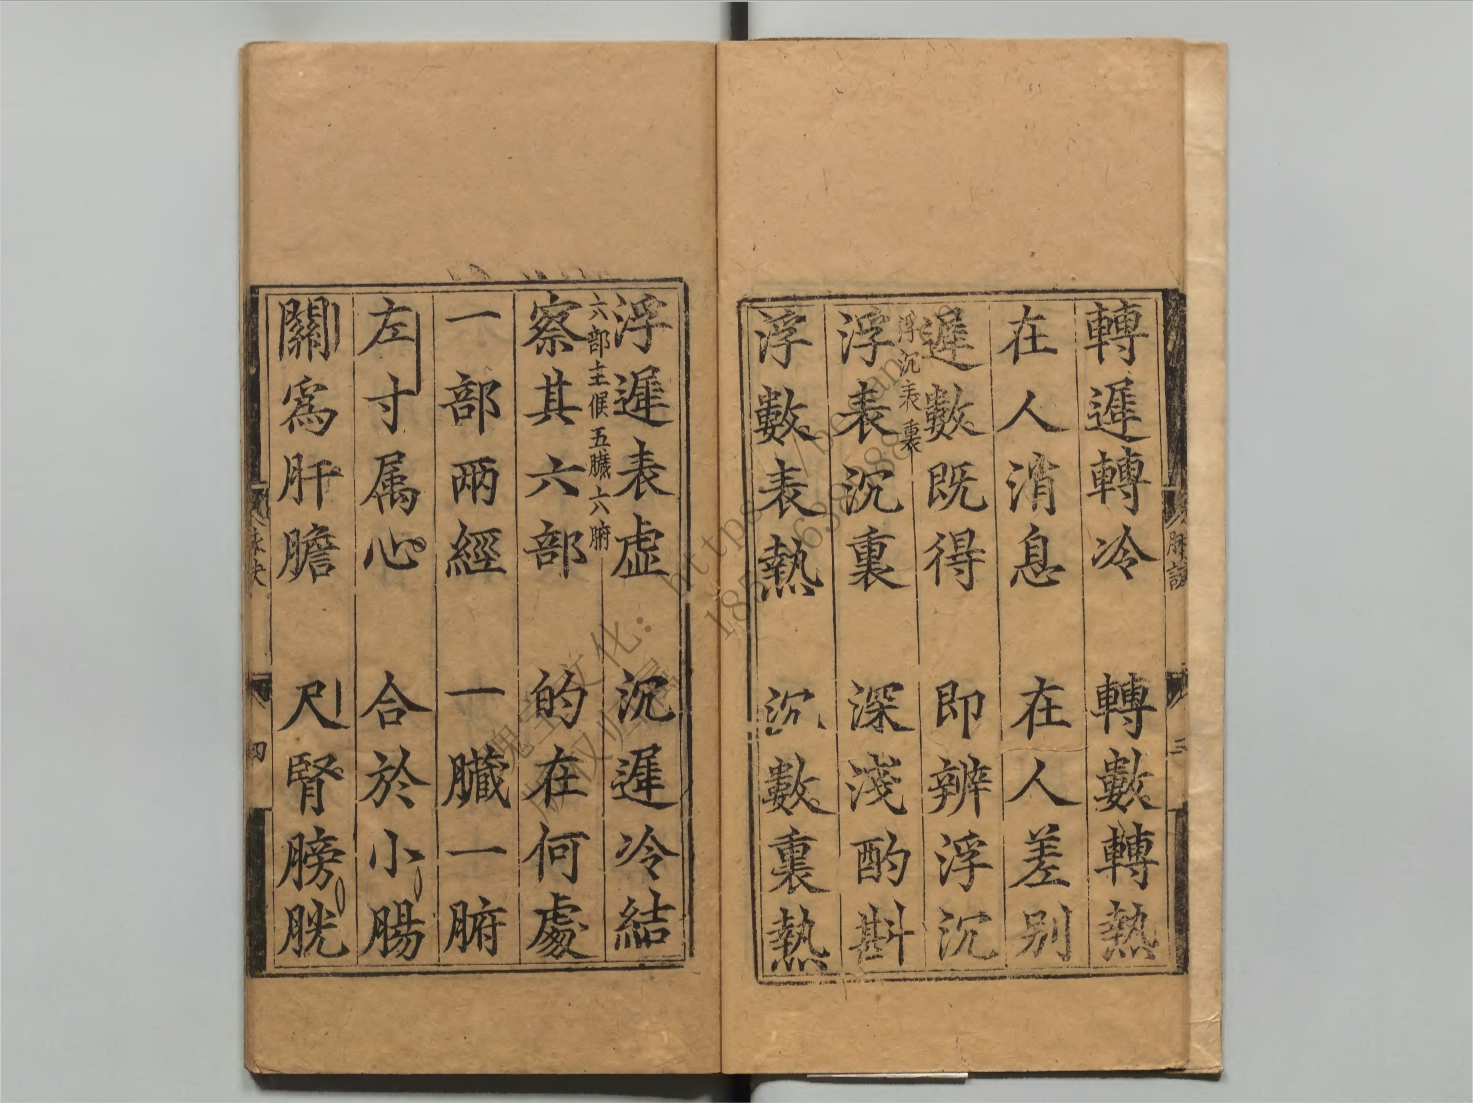 轉遲轉冷　轉數轉熱
在人消息　在人差别
遲數既得　即辨浮沉
浮沉表裏
浮表沉裏　深淺酌斟
浮數表熱　沉數裏熱
浮遲表虛　沉遲冷結
六部主候五臟六腑
察其六部　的在何處
一部兩經　一臟一腑
左寸属心　合於小腸
關爲肝膽　尺腎膀胱
三
四